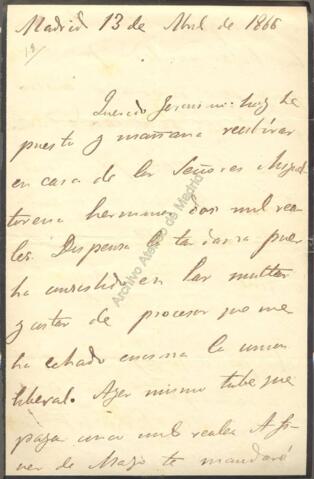 Madrid 13 de Abril de 1866
Querido Jeronimo: hoy he
puesto y mañana recibiras
en casa de los Señores
hermanos dos mil rea-
les. Dispensa la tardanza pues
ha consistido en las multas
y costas de procesos que me
ha echado encima la union
liberal. Ayer mismo tube que
pagar unos mil reales. A fi-
nes de Mayo te mandaré
Archivo Ateneo de Madrid